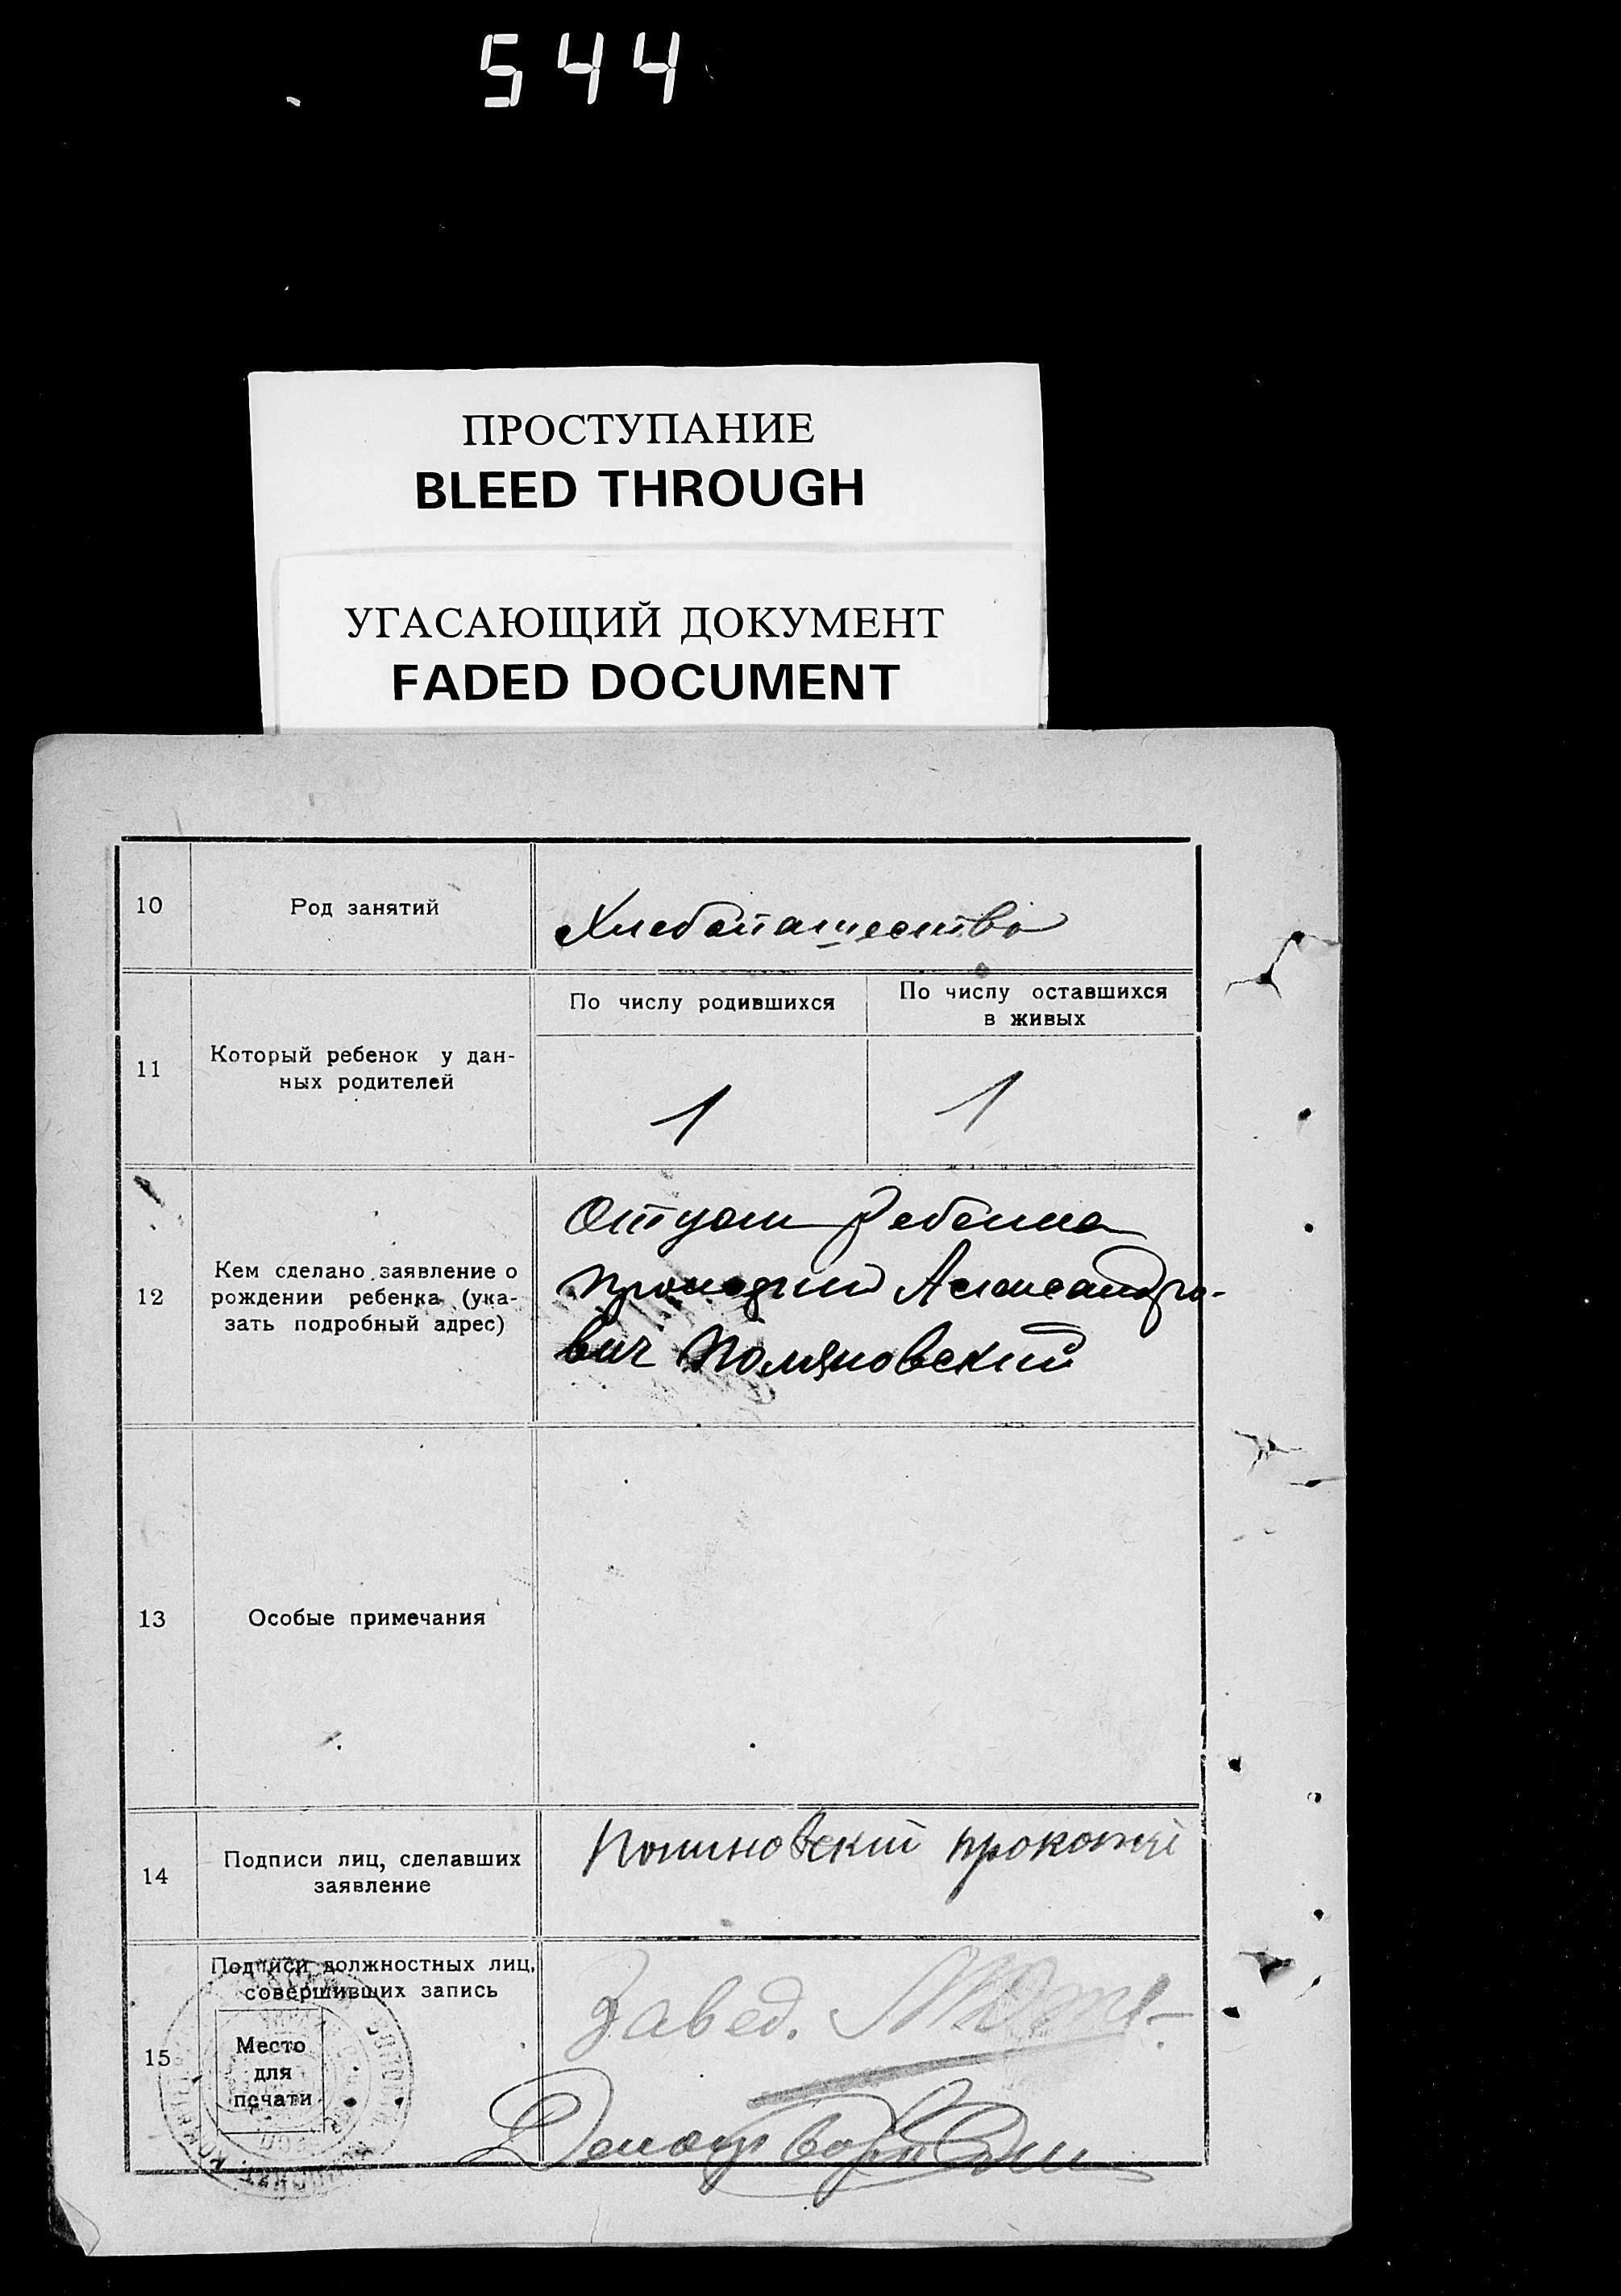 544
ПРОСТУПАНИЕ
BLEED THROUGH
УГАСАЮЩИЙ ДОКУМЕНТ
FADED DOCUMENT
10
Род занятий
Хлебопашество
11
Который ребенок у дан-
ных родителей
По числу родившихся
По числу оставшихся
в живых
1
1
12
Кем сделано заявление о
рождении ребенка (ука-
зать подробный адрес)
Отцом ребенка
Александро-
вич
13
Особые примечания
14
Подписи лиц, сделавших
заявление
15
Подписи должностных лиц,
совершивших запись
Место
для
печати
Завед.
Делопр